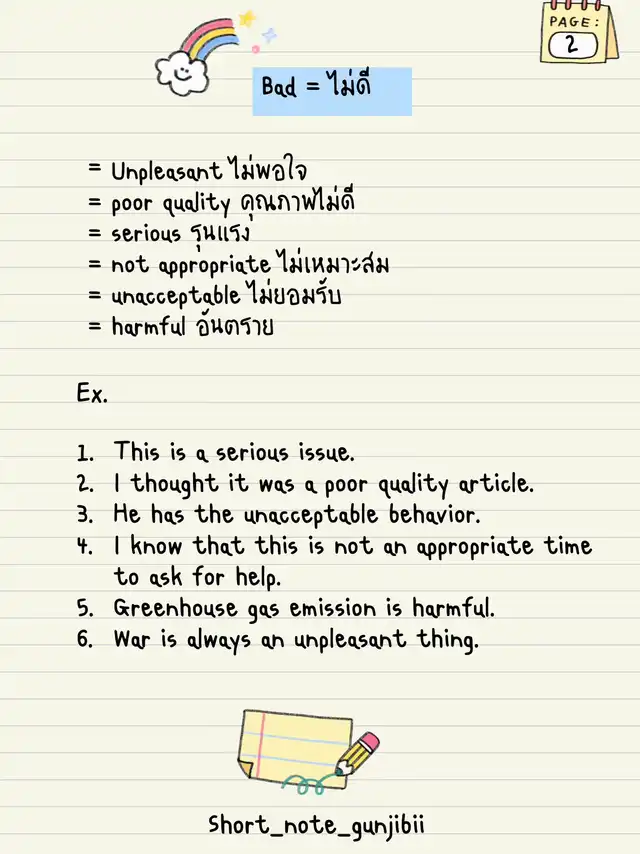 PAGE:
2
Bad = ไม่ดี
= Unpleasant ไม่พอใจ
= poor quality คุณภาพไม่ดี
= serious รุนแรง
= not appropriate ไม่เหมาะสม
= unacceptable ไม่ยอมรับ
= harmful อันตราย
Ex.
1. This is a serious issue.
2. I thought it was a poor quality article.
3. He has the unacceptable behavior.
4. I know that this is not an appropriate time
to ask for help.
5. Greenhouse gas emission is harmful.
6. War is always an unpleasant thing.
Short_note_gunjibii